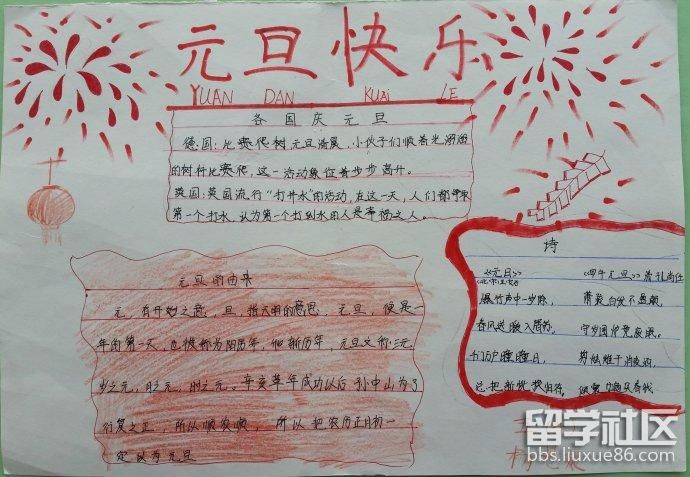 元旦快乐
YUAN DAN KUAI LE
各国庆元旦
德国:比赛爬树元旦活展,小伙子们顺着光溜溜
的树杆比赛爬,这一活动象征着步步高升。
英国:英国流行“打井水”的活动,在这一天,人们都争取
第一个打水,认为第一个打到水的人是幸福之人。
元旦的由来
元,有开始之意,旦,指天明的意思,元旦,便是一
年的第一天,也被称为阳历年,和新历年,元旦又称:三元
岁之元,月之元,时之元。辛亥革年成功以后孙中山为了
行夏之正,所以顺农顺,所以把农历正月初一
定以为元旦
诗
《元日》
爆竹声中一岁除,
春风送暖入屠苏,
千门万户曈曈日,
总把新桃换旧符。
《四年元旦》
萧疏白发不
守岁围炉竞
留学社区
bbs.liuxue86.com